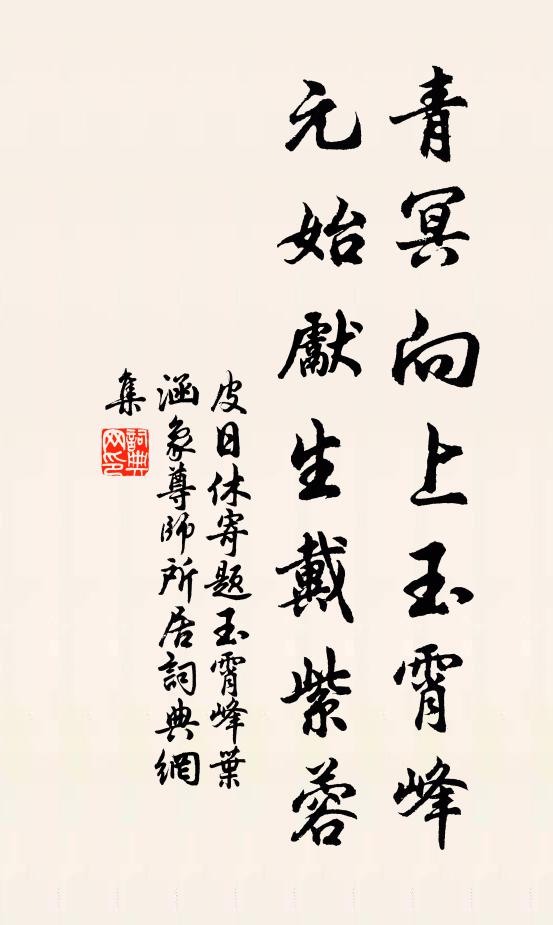 青冥向上玉霄峰
元始獻生戴紫蓉
皮日休寄題玉霄峰葉
涵象尊師所居詞典網
集
詞典
网印